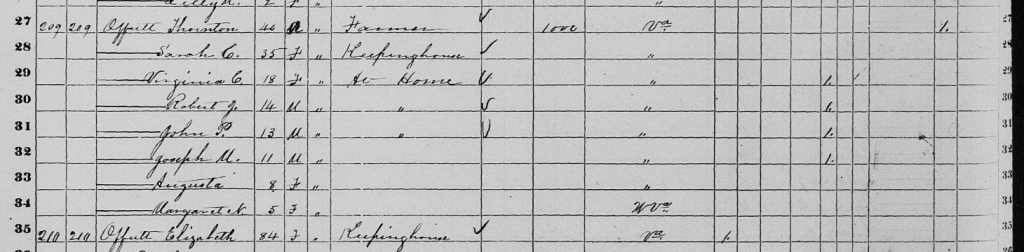 2 F "
27 209 209 Offutt Thornton 40 M " Farmer ✓ 1000 Va 1.
28 ——— Sarah C. 35 F " Keepinghouse ✓ "
29 ——— Virginia C. 18 F " At Home ✓ " 1.
30 ——— Robert J. 14 M " " ✓ " 1.
31 ——— John P. 13 M " " ✓ " 1.
32 ——— Joseph M. 11 M " " 1.
33 ——— Augusta 8 F " "
34 ——— Margaret N. 5 F " W Va
35 210 210 Offutt Elizabeth 84 F " Keepinghouse ✓ Va 1.